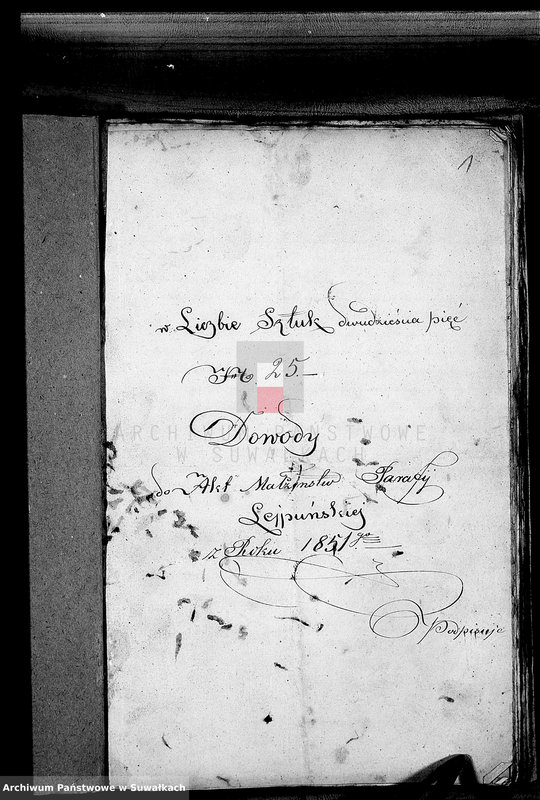 1
w Liczbie Sztuk dwudzieścia pięć
No. 25.—
ARCHIWUM PAŃSTWOWE
W SUWAŁKACH
Dowody
do Akt Małżeństw Parafij
Lejpuńskiej
z Roku 1851go
Podpisuje
Archiwum Państwowe w Suwałkach